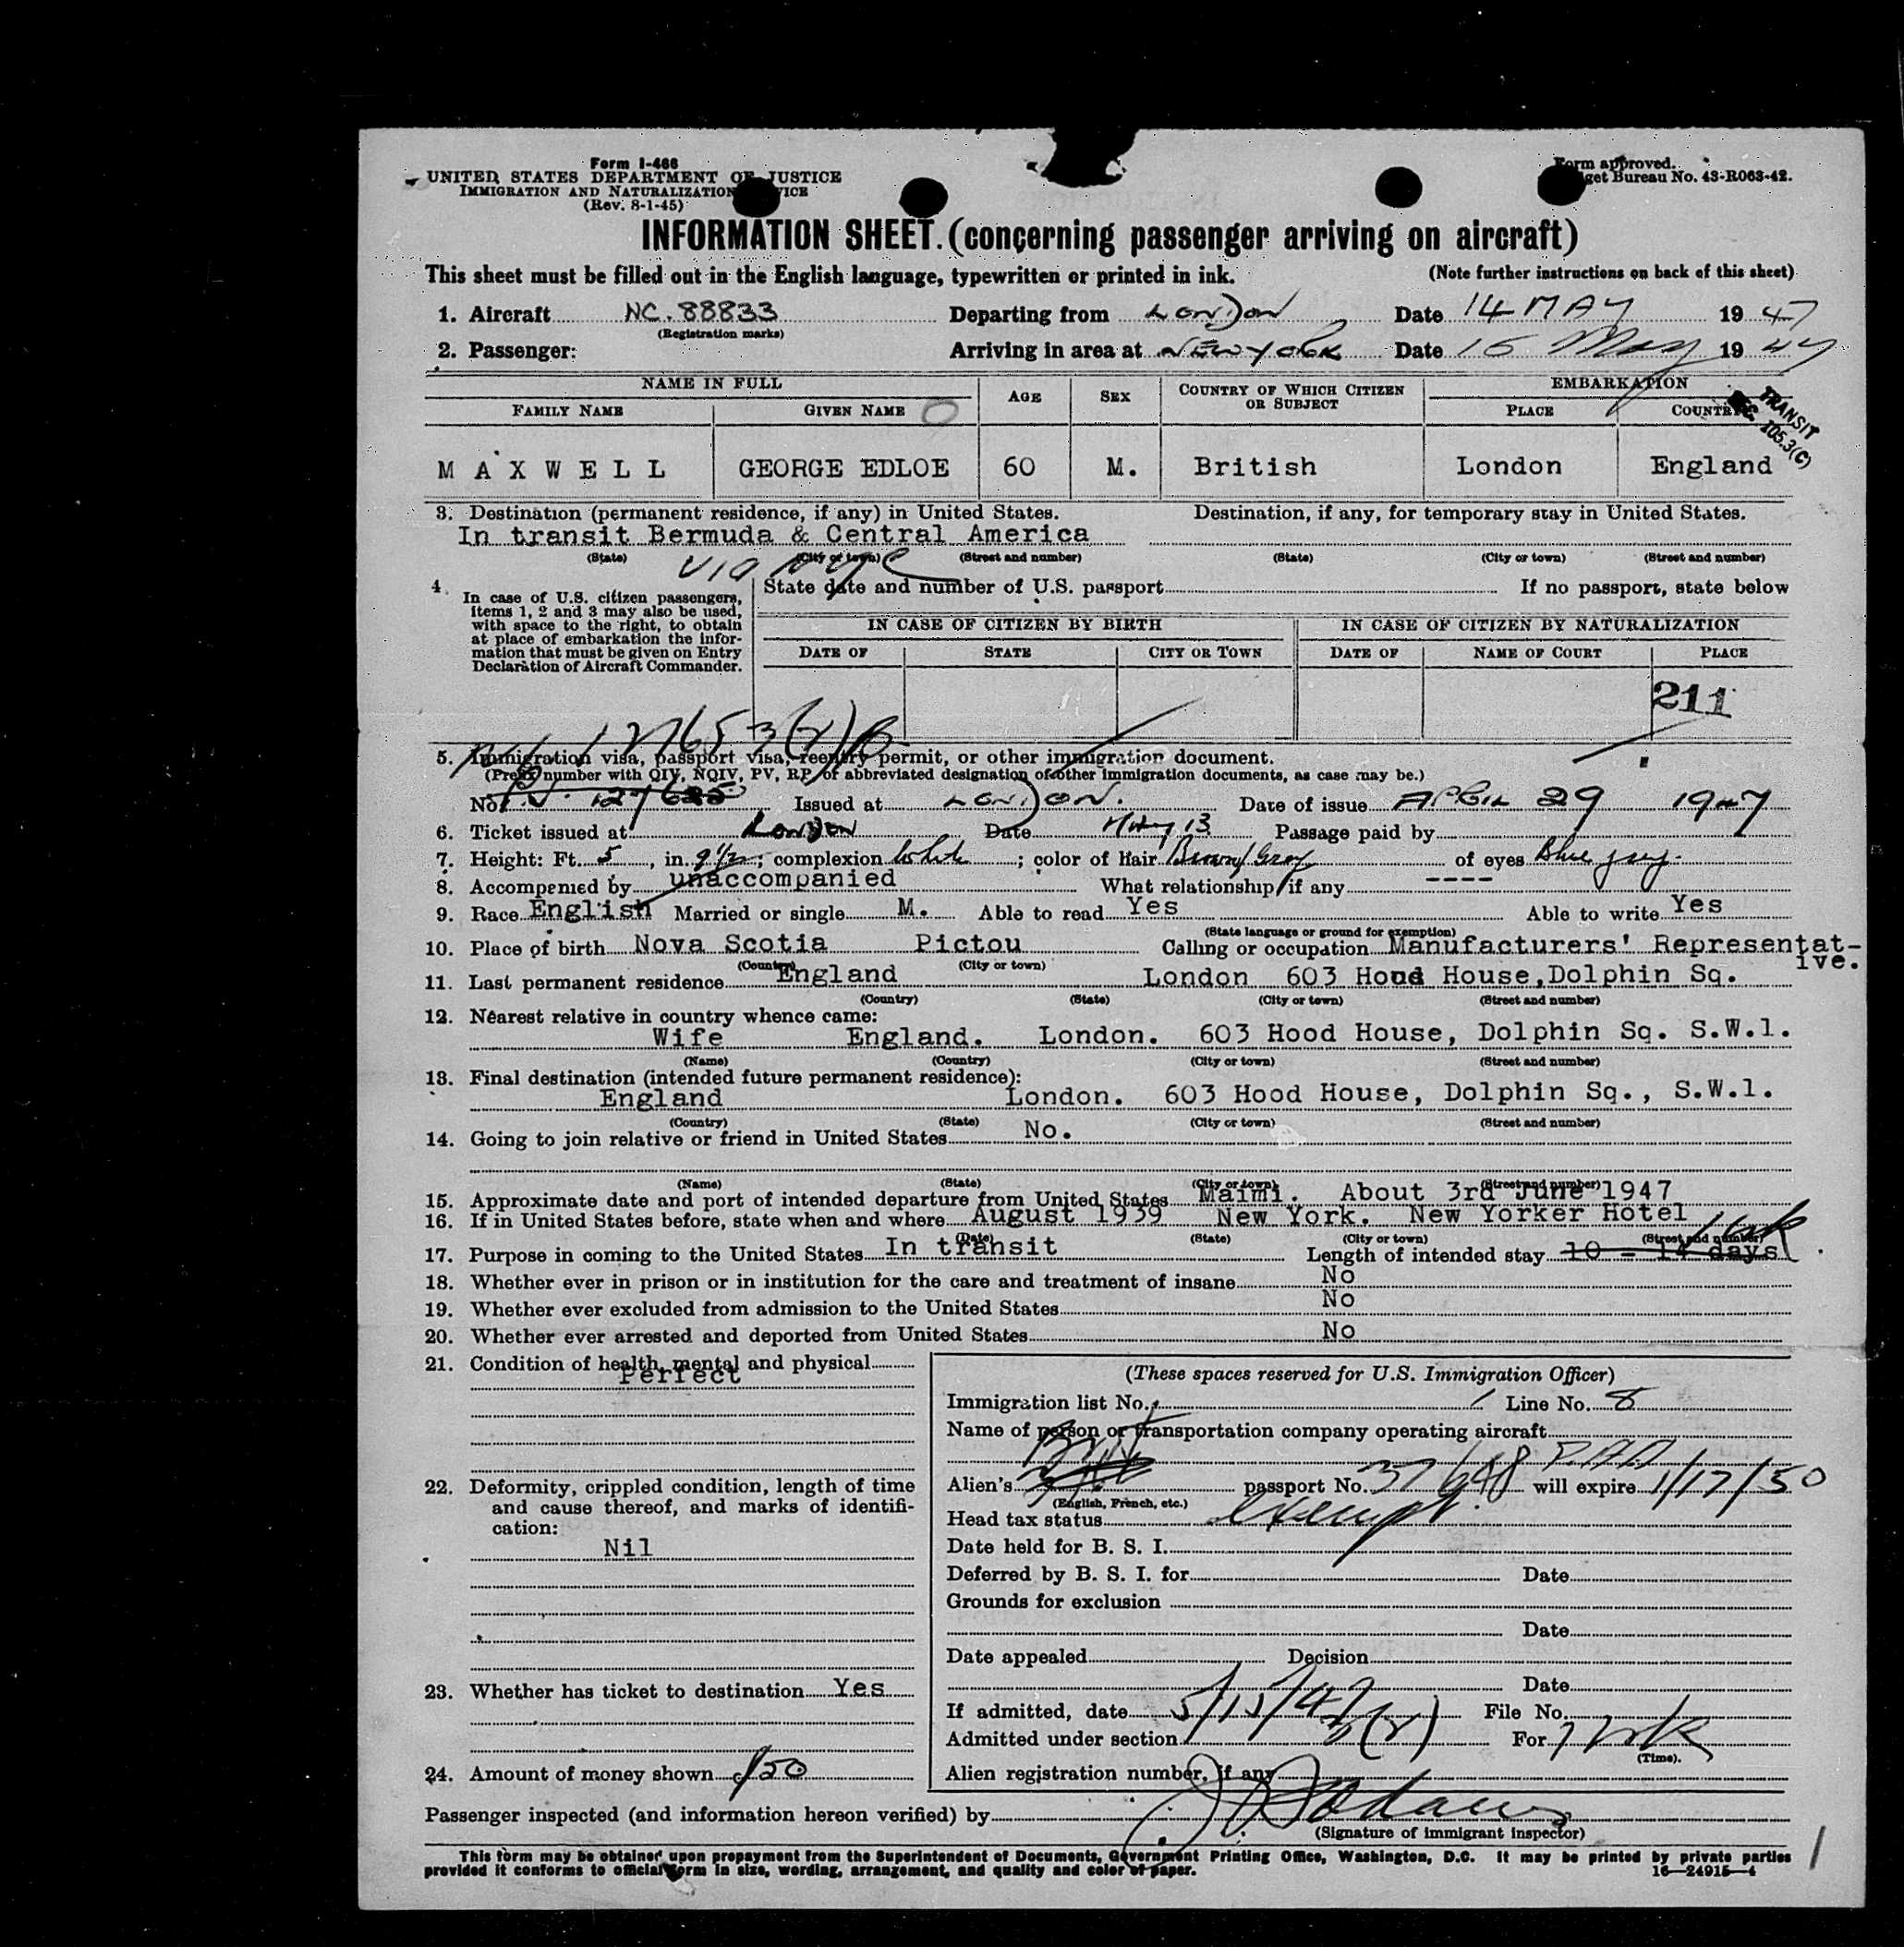 Form I-466
UNITED STATES DEPARTMENT OF JUSTICE
IMMIGRATION AND NATURALIZATION
(Rev. 8-1-45)
Form approved.
get Bureau No. 43-R063-42.
INFORMATION SHEET. (concerning passenger arriving on aircraft)
This sheet must be filled out in the English language, typewritten or printed in ink. (Note further instructions on back of this sheet)
1. Aircraft NC. 88833 Departing from LONDON Date 14 MAY 1947
(Registration marks)
2. Passenger: Arriving in area at NEW YORK Date 15 May 1947
NAME IN FULL AGE SEX COUNTRY OF WHICH CITIZEN OR SUBJECT EMBARKATION
FAMILY NAME GIVEN NAME PLACE COUNTRY
TRANSIT
105.3(C)
MAXWELL GEORGE EDLOE 60 M. British London England
3. Destination (permanent residence, if any) in United States. Destination, if any, for temporary stay in United States.
In transit Bermuda & Central America
(State) (City or town) (Street and number) (State) (City or town) (Street and number)
via NYC
4. In case of U.S. citizen passengers, items 1, 2 and 3 may also be used, with space to the right, to obtain at place of embarkation the information that must be given on Entry Declaration of Aircraft Commander.
State date and number of U.S. passport If no passport, state below
IN CASE OF CITIZEN BY BIRTH IN CASE OF CITIZEN BY NATURALIZATION
DATE OF STATE CITY OR TOWN DATE OF NAME OF COURT PLACE
211
5. Immigration visa, passport visa, reentry permit, or other immigration document.
(Prefix number with QIV, NQIV, PV, RP, or abbreviated designation of other immigration documents, as case may be.)
No. Issued at LONDON. Date of issue APRIL 29 1947
6. Ticket issued at London Date May 13 Passage paid by
7. Height: Ft. 5, in. 9½; complexion White; color of Hair Brown/Gray of eyes Blue grey.
8. Accompanied by unaccompanied What relationship, if any ----
9. Race English Married or single M. Able to read Yes Able to write Yes
(State language or ground for exemption)
10. Place of birth Nova Scotia Pictou Calling or occupation Manufacturers' Representat-
ive.
(Country) (City or town)
11. Last permanent residence England London 603 Hood House, Dolphin Sq.
(Country) (State) (City or town) (Street and number)
12. Nearest relative in country whence came:
Wife England. London. 603 Hood House, Dolphin Sq. S.W.1.
(Name) (Country) (City or town) (Street and number)
13. Final destination (intended future permanent residence):
England London. 603 Hood House, Dolphin Sq., S.W.1.
(Country) (State) (City or town) (Street and number)
14. Going to join relative or friend in United States No.
(Name) (State) (City or town) (Street and number)
15. Approximate date and port of intended departure from United States Maimi. About 3rd June 1947
16. If in United States before, state when and where August 1939 New York. New Yorker Hotel
(Date) (State) (City or town) (Street and number)
17. Purpose in coming to the United States In transit Length of intended stay 10 - 14 days
18. Whether ever in prison or in institution for the care and treatment of insane No
19. Whether ever excluded from admission to the United States No
20. Whether ever arrested and deported from United States No
21. Condition of health, mental and physical
Perfect
22. Deformity, crippled condition, length of time
and cause thereof, and marks of identifi-
cation:
Nil
23. Whether has ticket to destination Yes
24. Amount of money shown $50
(These spaces reserved for U.S. Immigration Officer)
Immigration list No. 1 Line No. 8
Name of person or transportation company operating aircraft
P.A.A
Alien's Brit passport No. 37648 will expire 1/17/50
(English, French, etc.)
Head tax status exempt
Date held for B. S. I.
Deferred by B. S. I. for Date
Grounds for exclusion
Date
Date appealed Decision
Date
If admitted, date 5/15/47 File No.
Admitted under section 3(2) For 1 wk
(Time).
Alien registration number, if any
Passenger inspected (and information hereon verified) by
(Signature of immigrant inspector)
This form may be obtained upon prepayment from the Superintendent of Documents, Government Printing Office, Washington, D.C. It may be printed by private parties
provided it conforms to official form in size, wording, arrangement, and quality and color of paper. 16—24915-4